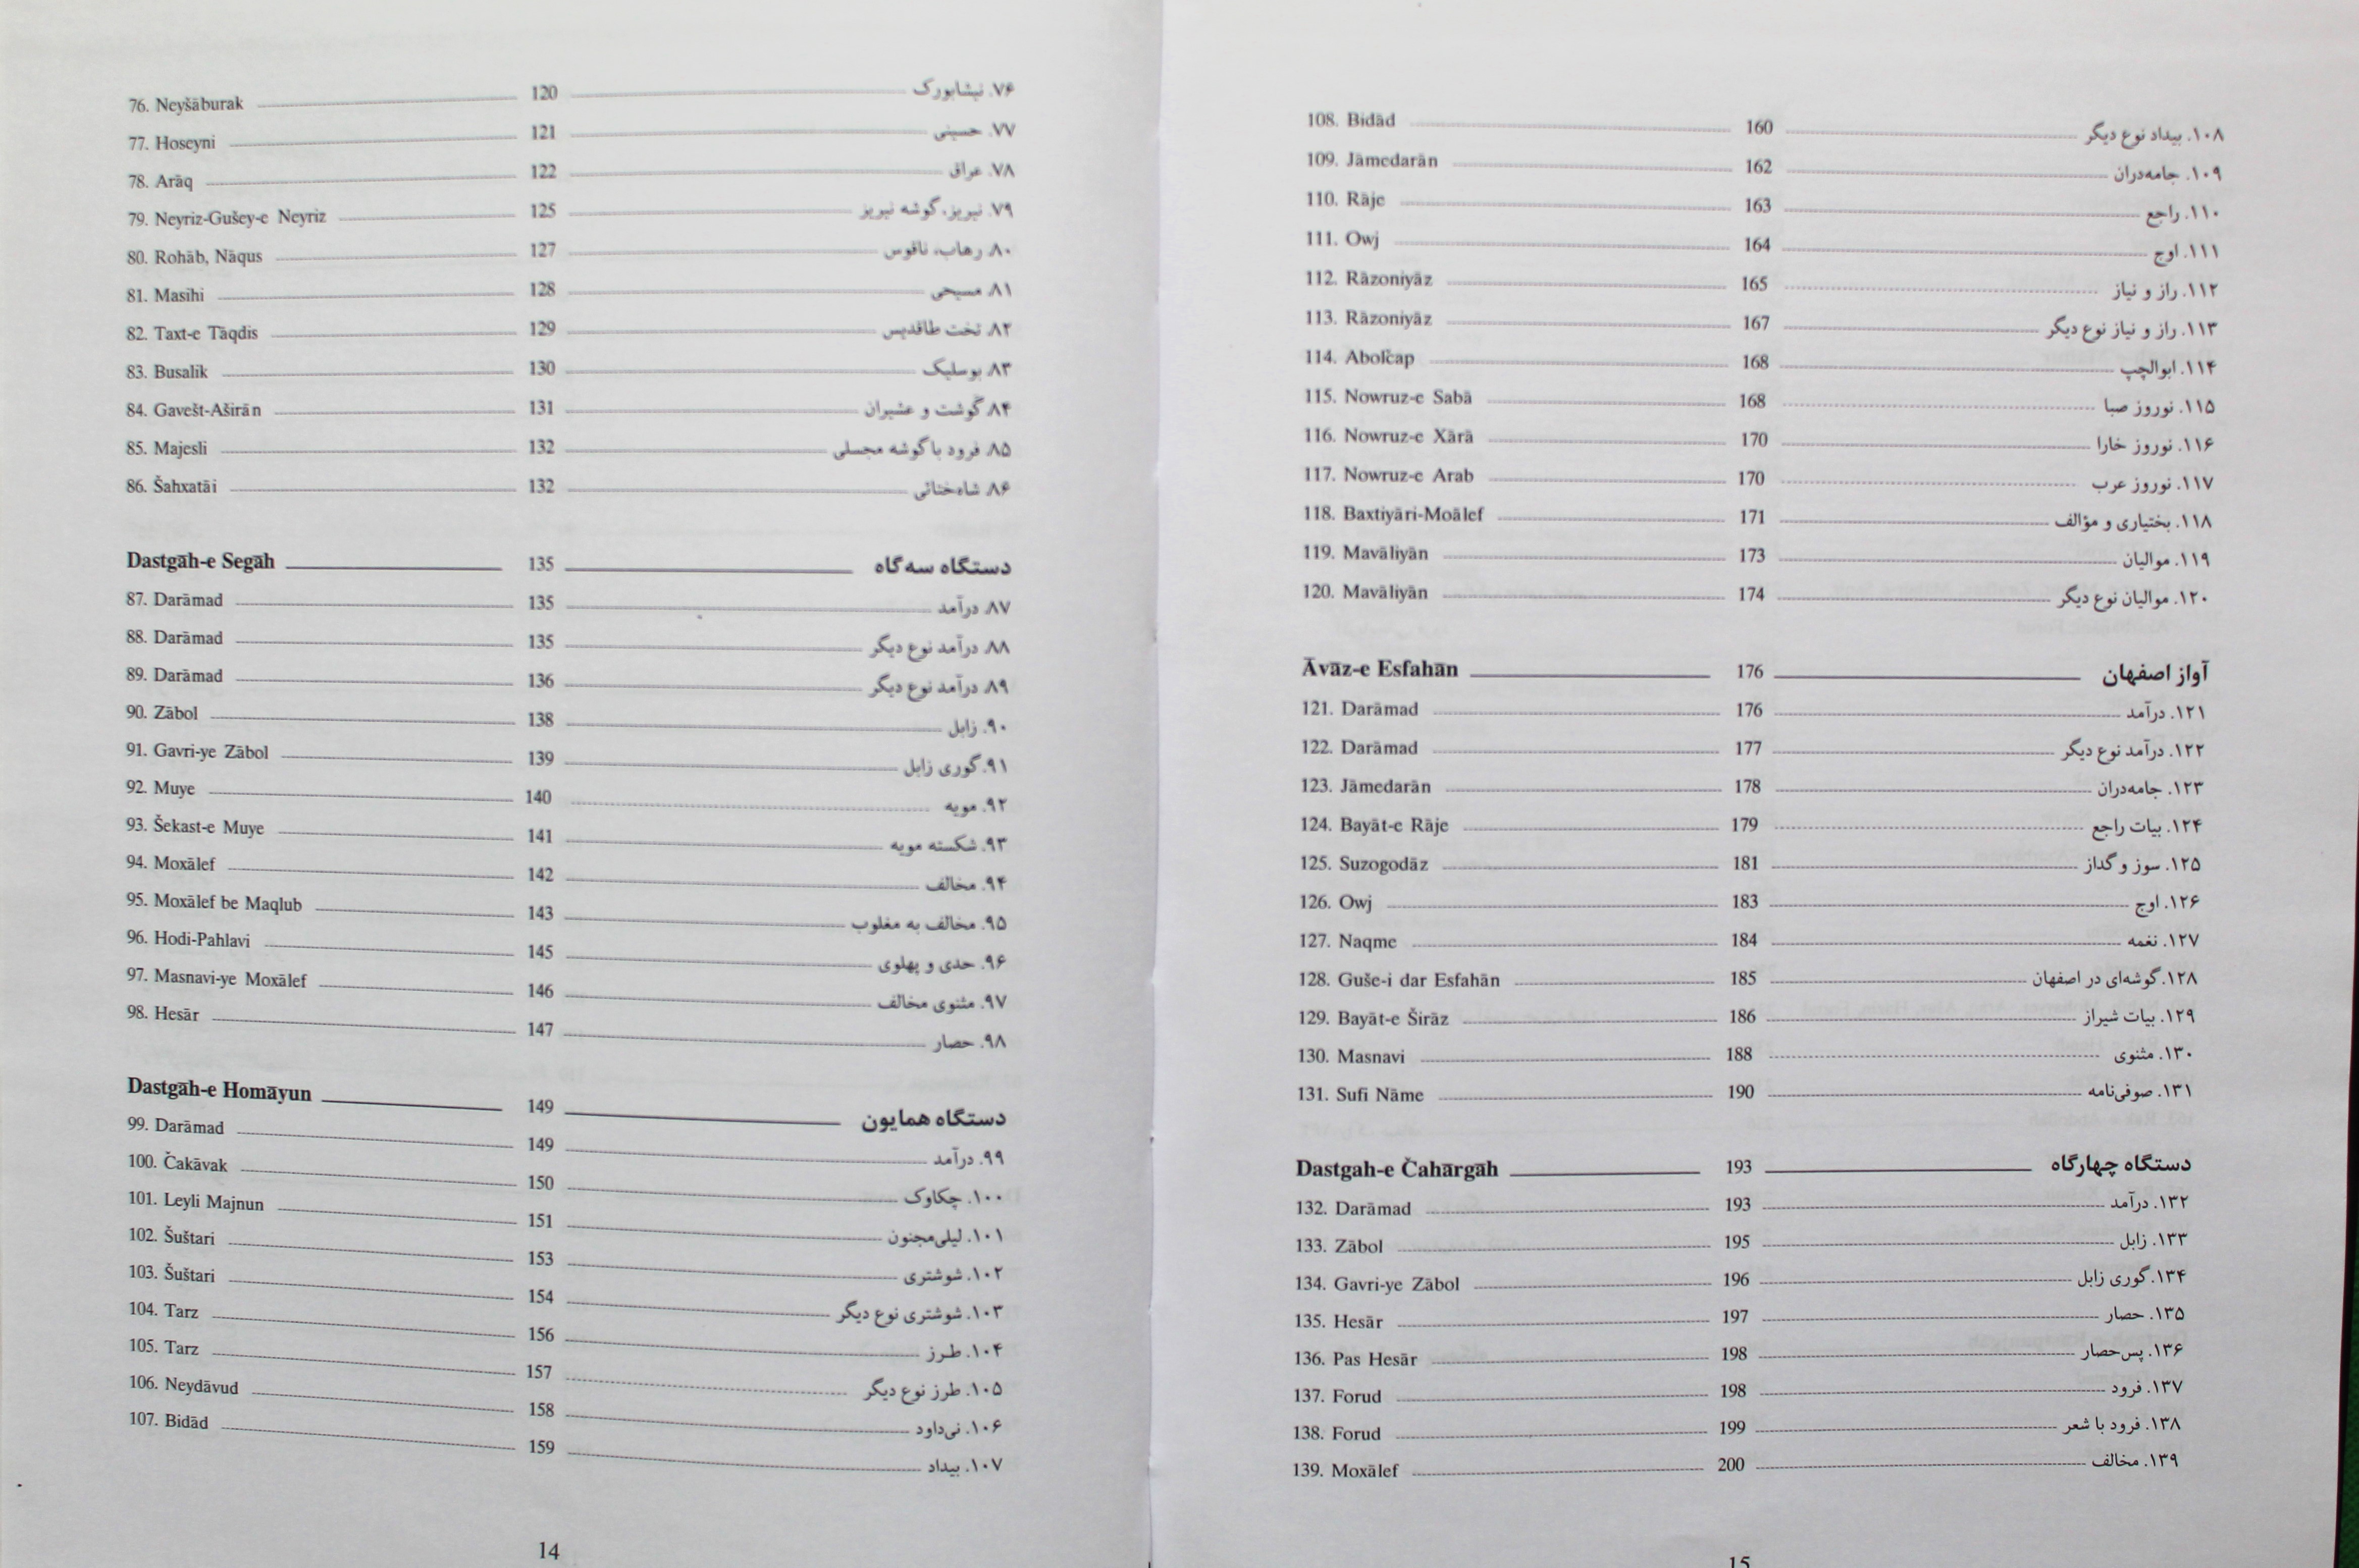 76. Neyšāburak 120 ۷۶. نیشابورک
77. Hoseyni 121 ۷۷. حسینی
78. Arāq 122 ۷۸. عراق
79. Neyriz-Gušey-e Neyriz 125 ۷۹. نیریز، گوشه نیریز
80. Rohāb, Nāqus 127 ۸۰. رهاب، ناقوس
81. Masihi 128 ۸۱. مسیحی
82. Taxt-e Tāqdis 129 ۸۲. تخت طاقدیس
83. Busalik 130 ۸۳. بوسلیک
84. Gavešt-Aširān 131 ۸۴. گوشت و عشیران
85. Majesli 132 ۸۵. فرود با گوشه مجسلی
86. Šahxatāi 132 ۸۶. شاه‌ختائی
Dastgāh-e Segāh 135 دستگاه سه‌گاه
87. Darāmad 135 ۸۷. درآمد
88. Darāmad 135 ۸۸. درآمد نوع دیگر
89. Darāmad 136 ۸۹. درآمد نوع دیگر
90. Zābol 138 ۹۰. زابل
91. Gavri-ye Zābol 139 ۹۱. گوری زابل
92. Muye 140 ۹۲. مویه
93. Šekast-e Muye 141 ۹۳. شکسته مویه
94. Moxālef 142 ۹۴. مخالف
95. Moxālef be Maqlub 143 ۹۵. مخالف به مغلوب
96. Hodi-Pahlavi 145 ۹۶. حدی و پهلوی
97. Masnavi-ye Moxālef 146 ۹۷. مثنوی مخالف
98. Hesār 147 ۹۸. حصار
Dastgāh-e Homāyun 149 دستگاه همایون
99. Darāmad 149 ۹۹. درآمد
100. Čakāvak 150 ۱۰۰. چکاوک
101. Leyli Majnun 151 ۱۰۱. لیلی‌مجنون
102. Šuštari 153 ۱۰۲. شوشتری
103. Šuštari 154 ۱۰۳. شوشتری نوع دیگر
104. Tarz 156 ۱۰۴. طرز
105. Tarz 157 ۱۰۵. طرز نوع دیگر
106. Neydāvud 158 ۱۰۶. نی‌داود
107. Bidād 159 ۱۰۷. بیداد
14
108. Bidād 160 ۱۰۸. بیداد نوع دیگر
109. Jāmedarān 162 ۱۰۹. جامه‌دران
110. Rāje 163 ۱۱۰. راجع
111. Owj 164 ۱۱۱. اوج
112. Rāzoniyāz 165 ۱۱۲. راز و نیاز
113. Rāzoniyāz 167 ۱۱۳. راز و نیاز نوع دیگر
114. Abolčap 168 ۱۱۴. ابوالچپ
115. Nowruz-e Sabā 168 ۱۱۵. نوروز صبا
116. Nowruz-e Xārā 170 ۱۱۶. نوروز خارا
117. Nowruz-e Arab 170 ۱۱۷. نوروز عرب
118. Baxtiyāri-Moālef 171 ۱۱۸. بختیاری و مؤالف
119. Mavāliyān 173 ۱۱۹. موالیان
120. Mavāliyān 174 ۱۲۰. موالیان نوع دیگر
Āvāz-e Esfahān 176 آواز اصفهان
121. Darāmad 176 ۱۲۱. درآمد
122. Darāmad 177 ۱۲۲. درآمد نوع دیگر
123. Jāmedarān 178 ۱۲۳. جامه‌دران
124. Bayāt-e Rāje 179 ۱۲۴. بیات راجع
125. Suzogodāz 181 ۱۲۵. سوز و گداز
126. Owj 183 ۱۲۶. اوج
127. Naqme 184 ۱۲۷. نغمه
128. Guše-i dar Esfahān 185 ۱۲۸. گوشه‌ای در اصفهان
129. Bayāt-e Širāz 186 ۱۲۹. بیات شیراز
130. Masnavi 188 ۱۳۰. مثنوی
131. Sufi Nāme 190 ۱۳۱. صوفی‌نامه
Dastgah-e Čahārgāh 193 دستگاه چهارگاه
132. Darāmad 193 ۱۳۲. درآمد
133. Zābol 195 ۱۳۳. زابل
134. Gavri-ye Zābol 196 ۱۳۴. گوری زابل
135. Hesār 197 ۱۳۵. حصار
136. Pas Hesār 198 ۱۳۶. پس‌حصار
137. Forud 198 ۱۳۷. فرود
138. Forud 199 ۱۳۸. فرود با شعر
139. Moxālef 200 ۱۳۹. مخالف
15